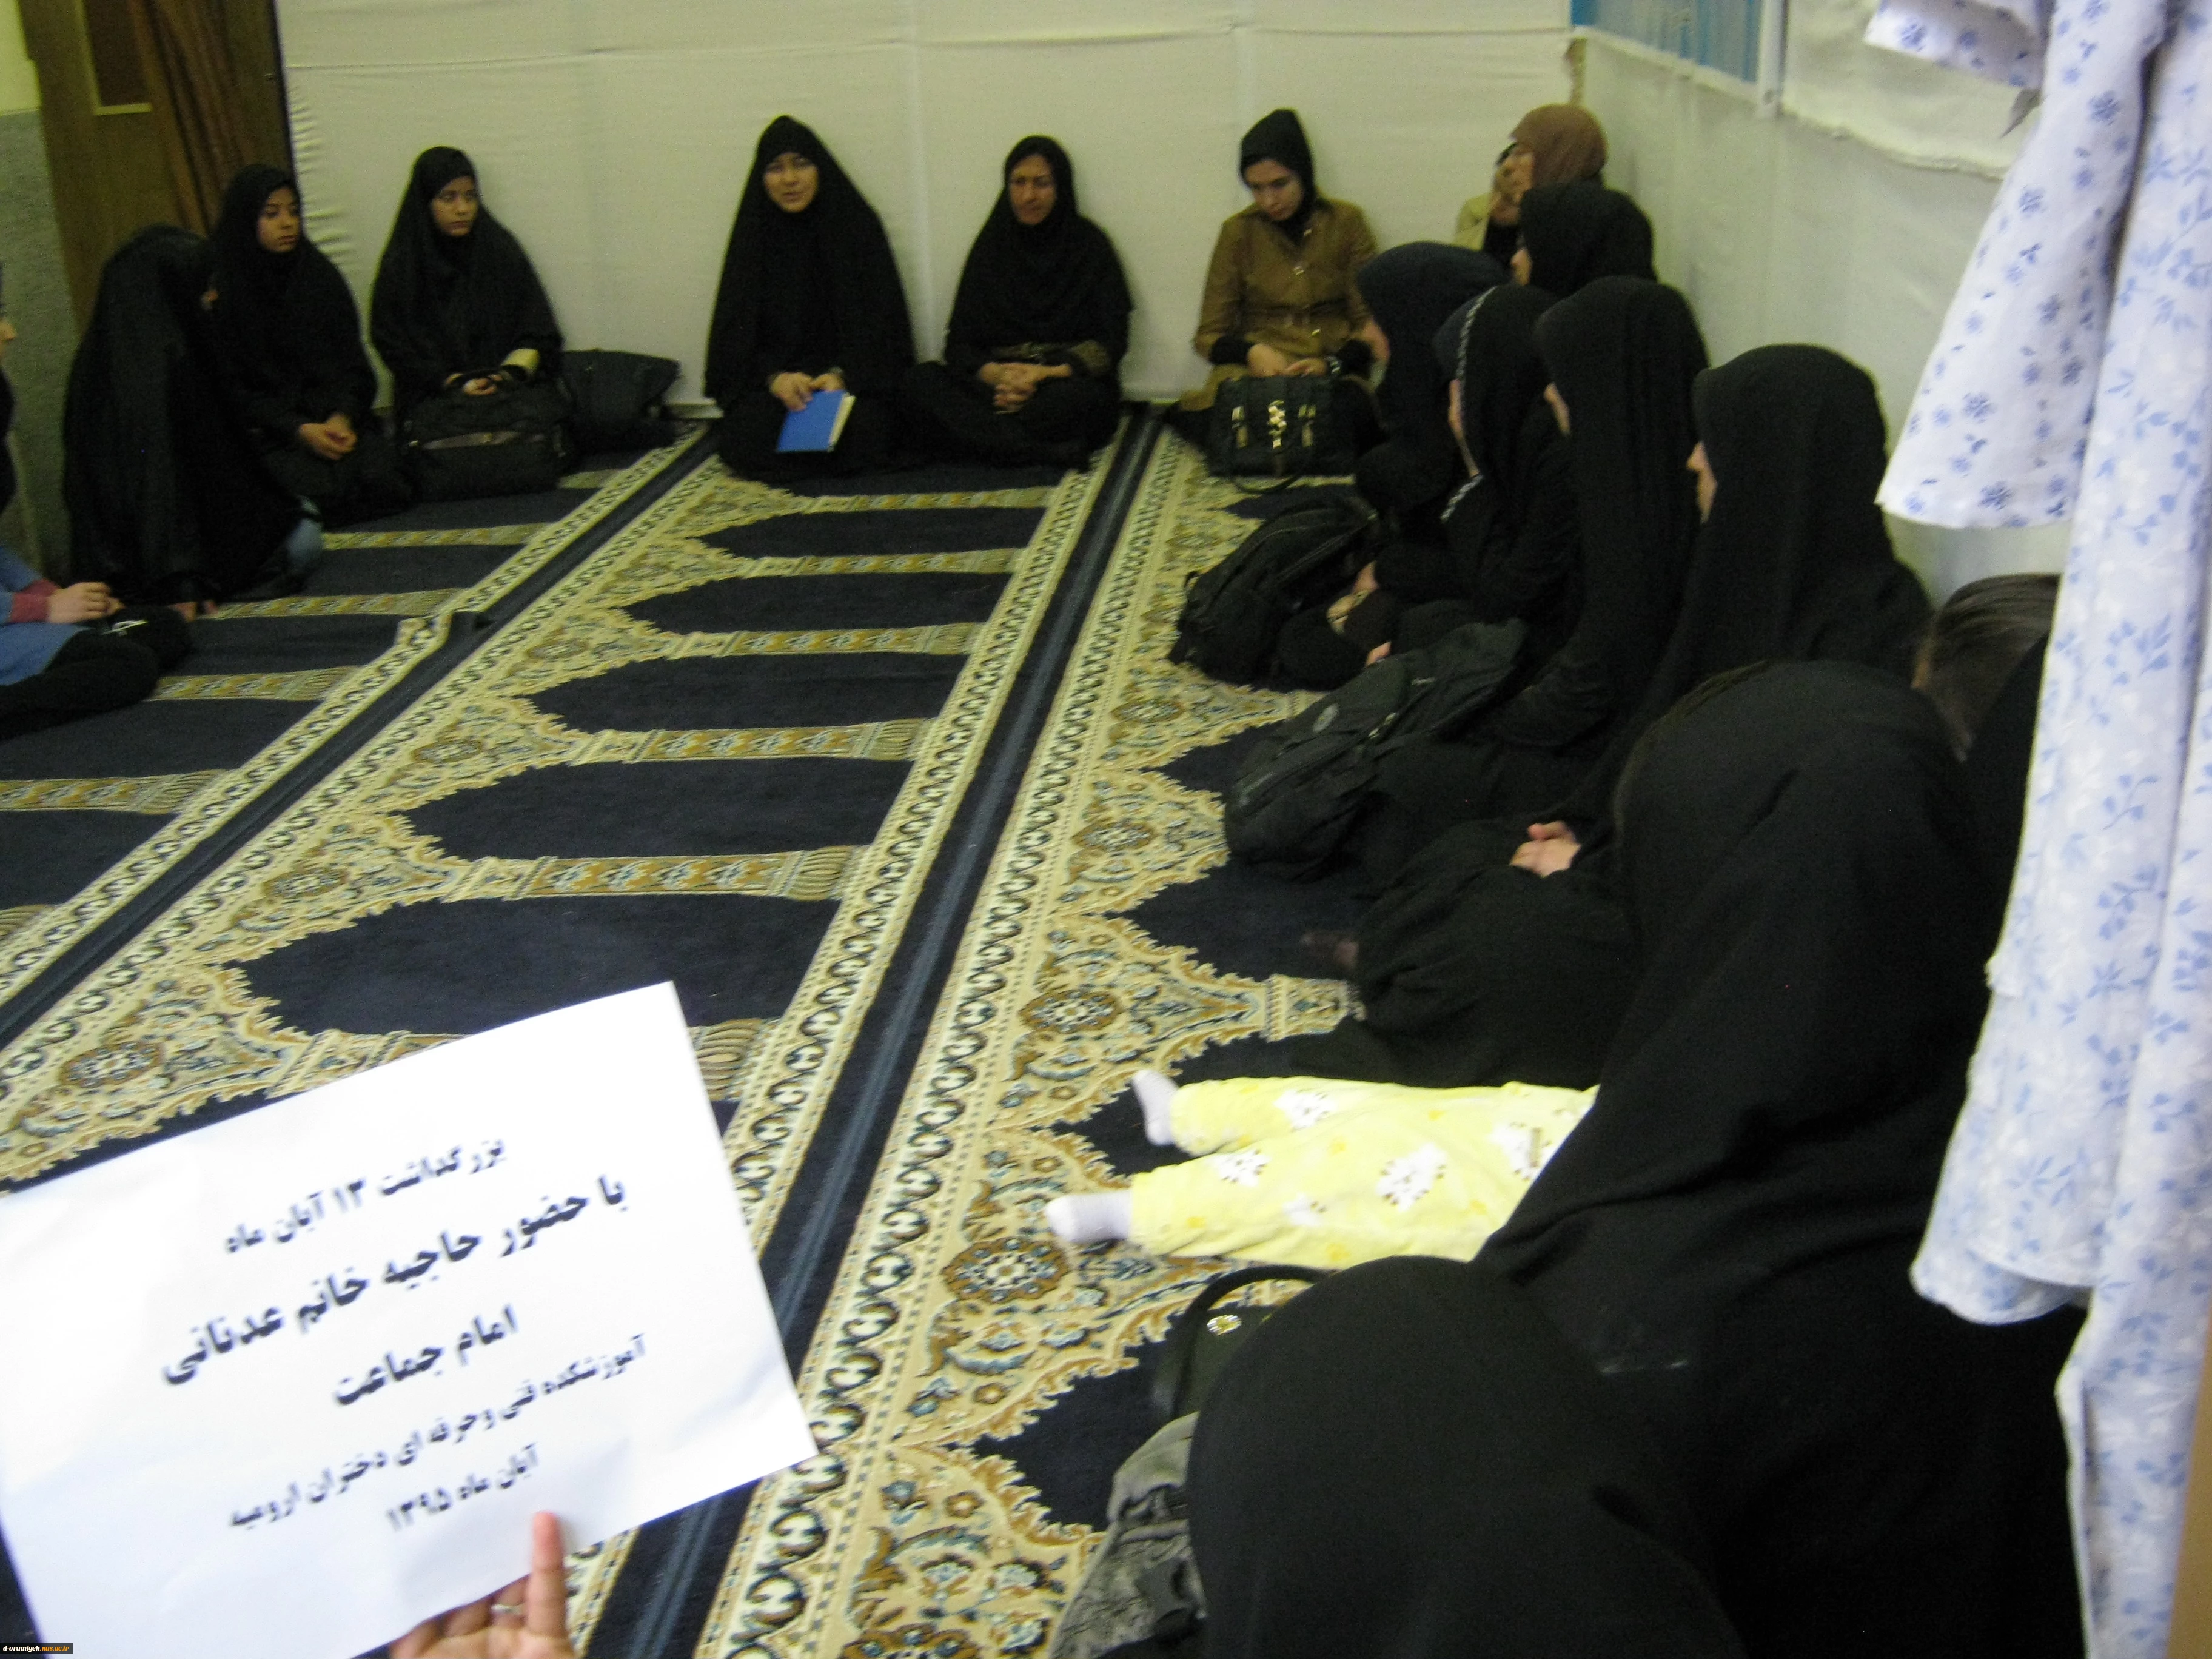 بزرگداشت ۱۳ آبان ماه
با حضور حاجیه خانم عدنانی
امام جماعت
آموزشکده فنی وحرفه ای دختران ارومیه
آبان ماه ۱۳۹۵
d-orumiyeh.nus.ac.ir